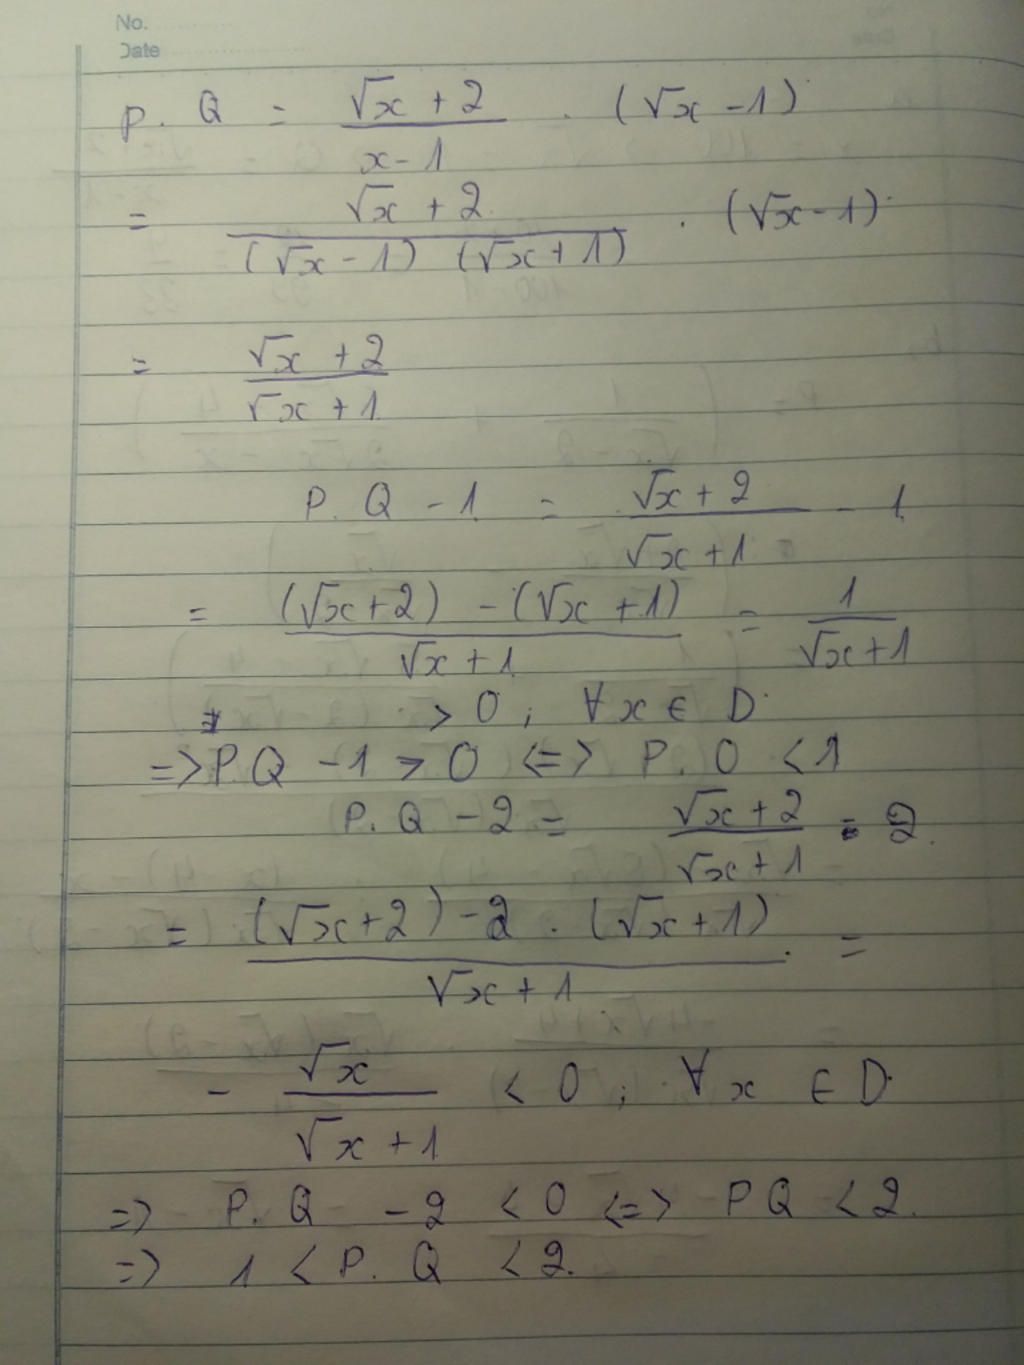 No.
Date
P. Q = (√x + 2)/(x - 1) . (√x - 1)
= (√x + 2)/((√x - 1) (√x + 1)) . (√x - 1)
= (√x + 2)/(√x + 1)
P. Q - 1 = (√x + 2)/(√x + 1) - 1
= ((√x + 2) - (√x + 1))/(√x + 1) = 1/(√x + 1)
> 0 ; ∀ x ∈ D
=> P.Q - 1 > 0 <=> P. Q < 1
P. Q - 2 = (√x + 2)/(√x + 1) - 2
= ((√x + 2) - 2 . (√x + 1))/(√x + 1) =
- √x/(√x + 1) < 0 ; ∀ x ∈ D
=> P. Q - 2 < 0 <=> PQ < 2.
=> 1 < P. Q < 2.